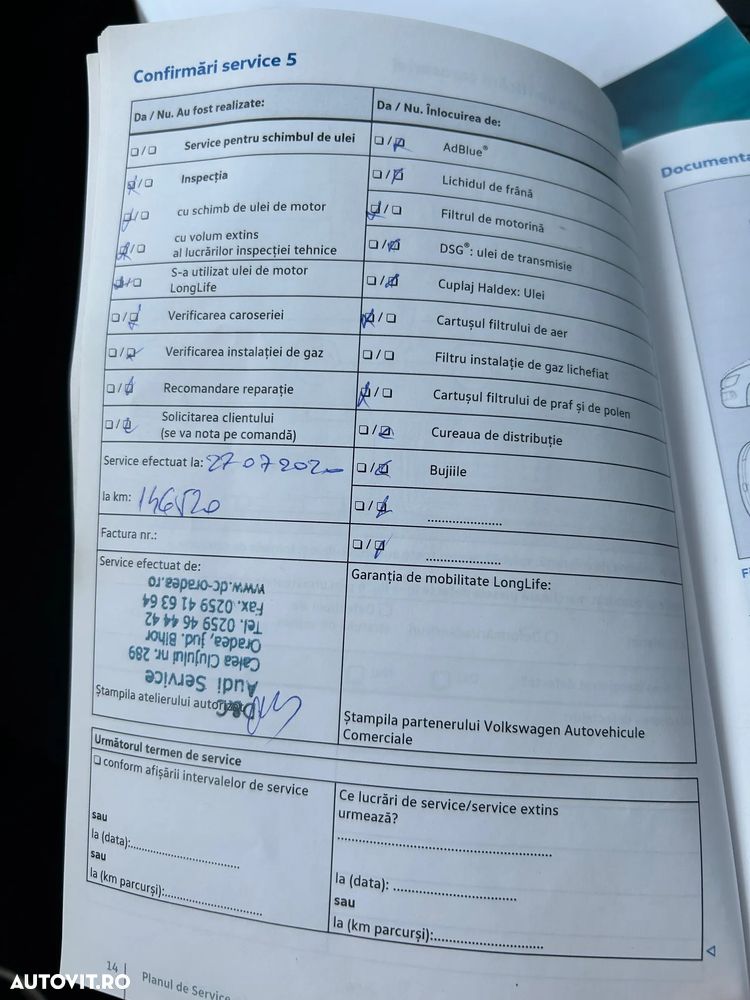 Confirmări service 5
Da / Nu. Au fost realizate:
❑ / ❑ Service pentru schimbul de ulei
❑ / ❑ Inspecția
❑ / ❑ cu schimb de ulei de motor
❑ / ❑ cu volum extins
al lucrărilor inspecției tehnice
❑ / ❑ S-a utilizat ulei de motor
LongLife
❑ / ❑ Verificarea caroseriei
❑ / ❑ Verificarea instalației de gaz
❑ / ❑ Recomandare reparație
❑ / ❑ Solicitarea clientului
(se va nota pe comandă)
Service efectuat la: 27 07 2020
la km: 146520
Factura nr.:
Service efectuat de:
Ștampila atelierului
D&C
Audi Service
Calea Clujului nr. 289
Oradea, jud. Bihor
Tel. 0259 46 44 42
Fax. 0259 41 63 64
www.dc-oradea.ro
Da / Nu. Înlocuirea de:
❑ / ❑ AdBlue®
❑ / ❑ Lichidul de frână
❑ / ❑ Filtrul de motorină
❑ / ❑ DSG®: ulei de transmisie
❑ / ❑ Cuplaj Haldex: Ulei
❑ / ❑ Cartușul filtrului de aer
❑ / ❑ Filtru instalație de gaz lichefiat
❑ / ❑ Cartușul filtrului de praf și de polen
❑ / ❑ Cureaua de distribuție
❑ / ❑ Bujiile
❑ / ❑ ....................
❑ / ❑ ....................
Garanția de mobilitate LongLife:
Ștampila partenerului Volkswagen Autovehicule
Comerciale
Următorul termen de service
❑ conform afișării intervalelor de service
sau
la (data):..............................
sau
la (km parcurși):..............................
Ce lucrări de service/service extins
urmează?
............................................................
la (data): ..............................
sau
la (km parcurși):..............................
14
Planul de Service
Documenta
AUTOVIT.RO